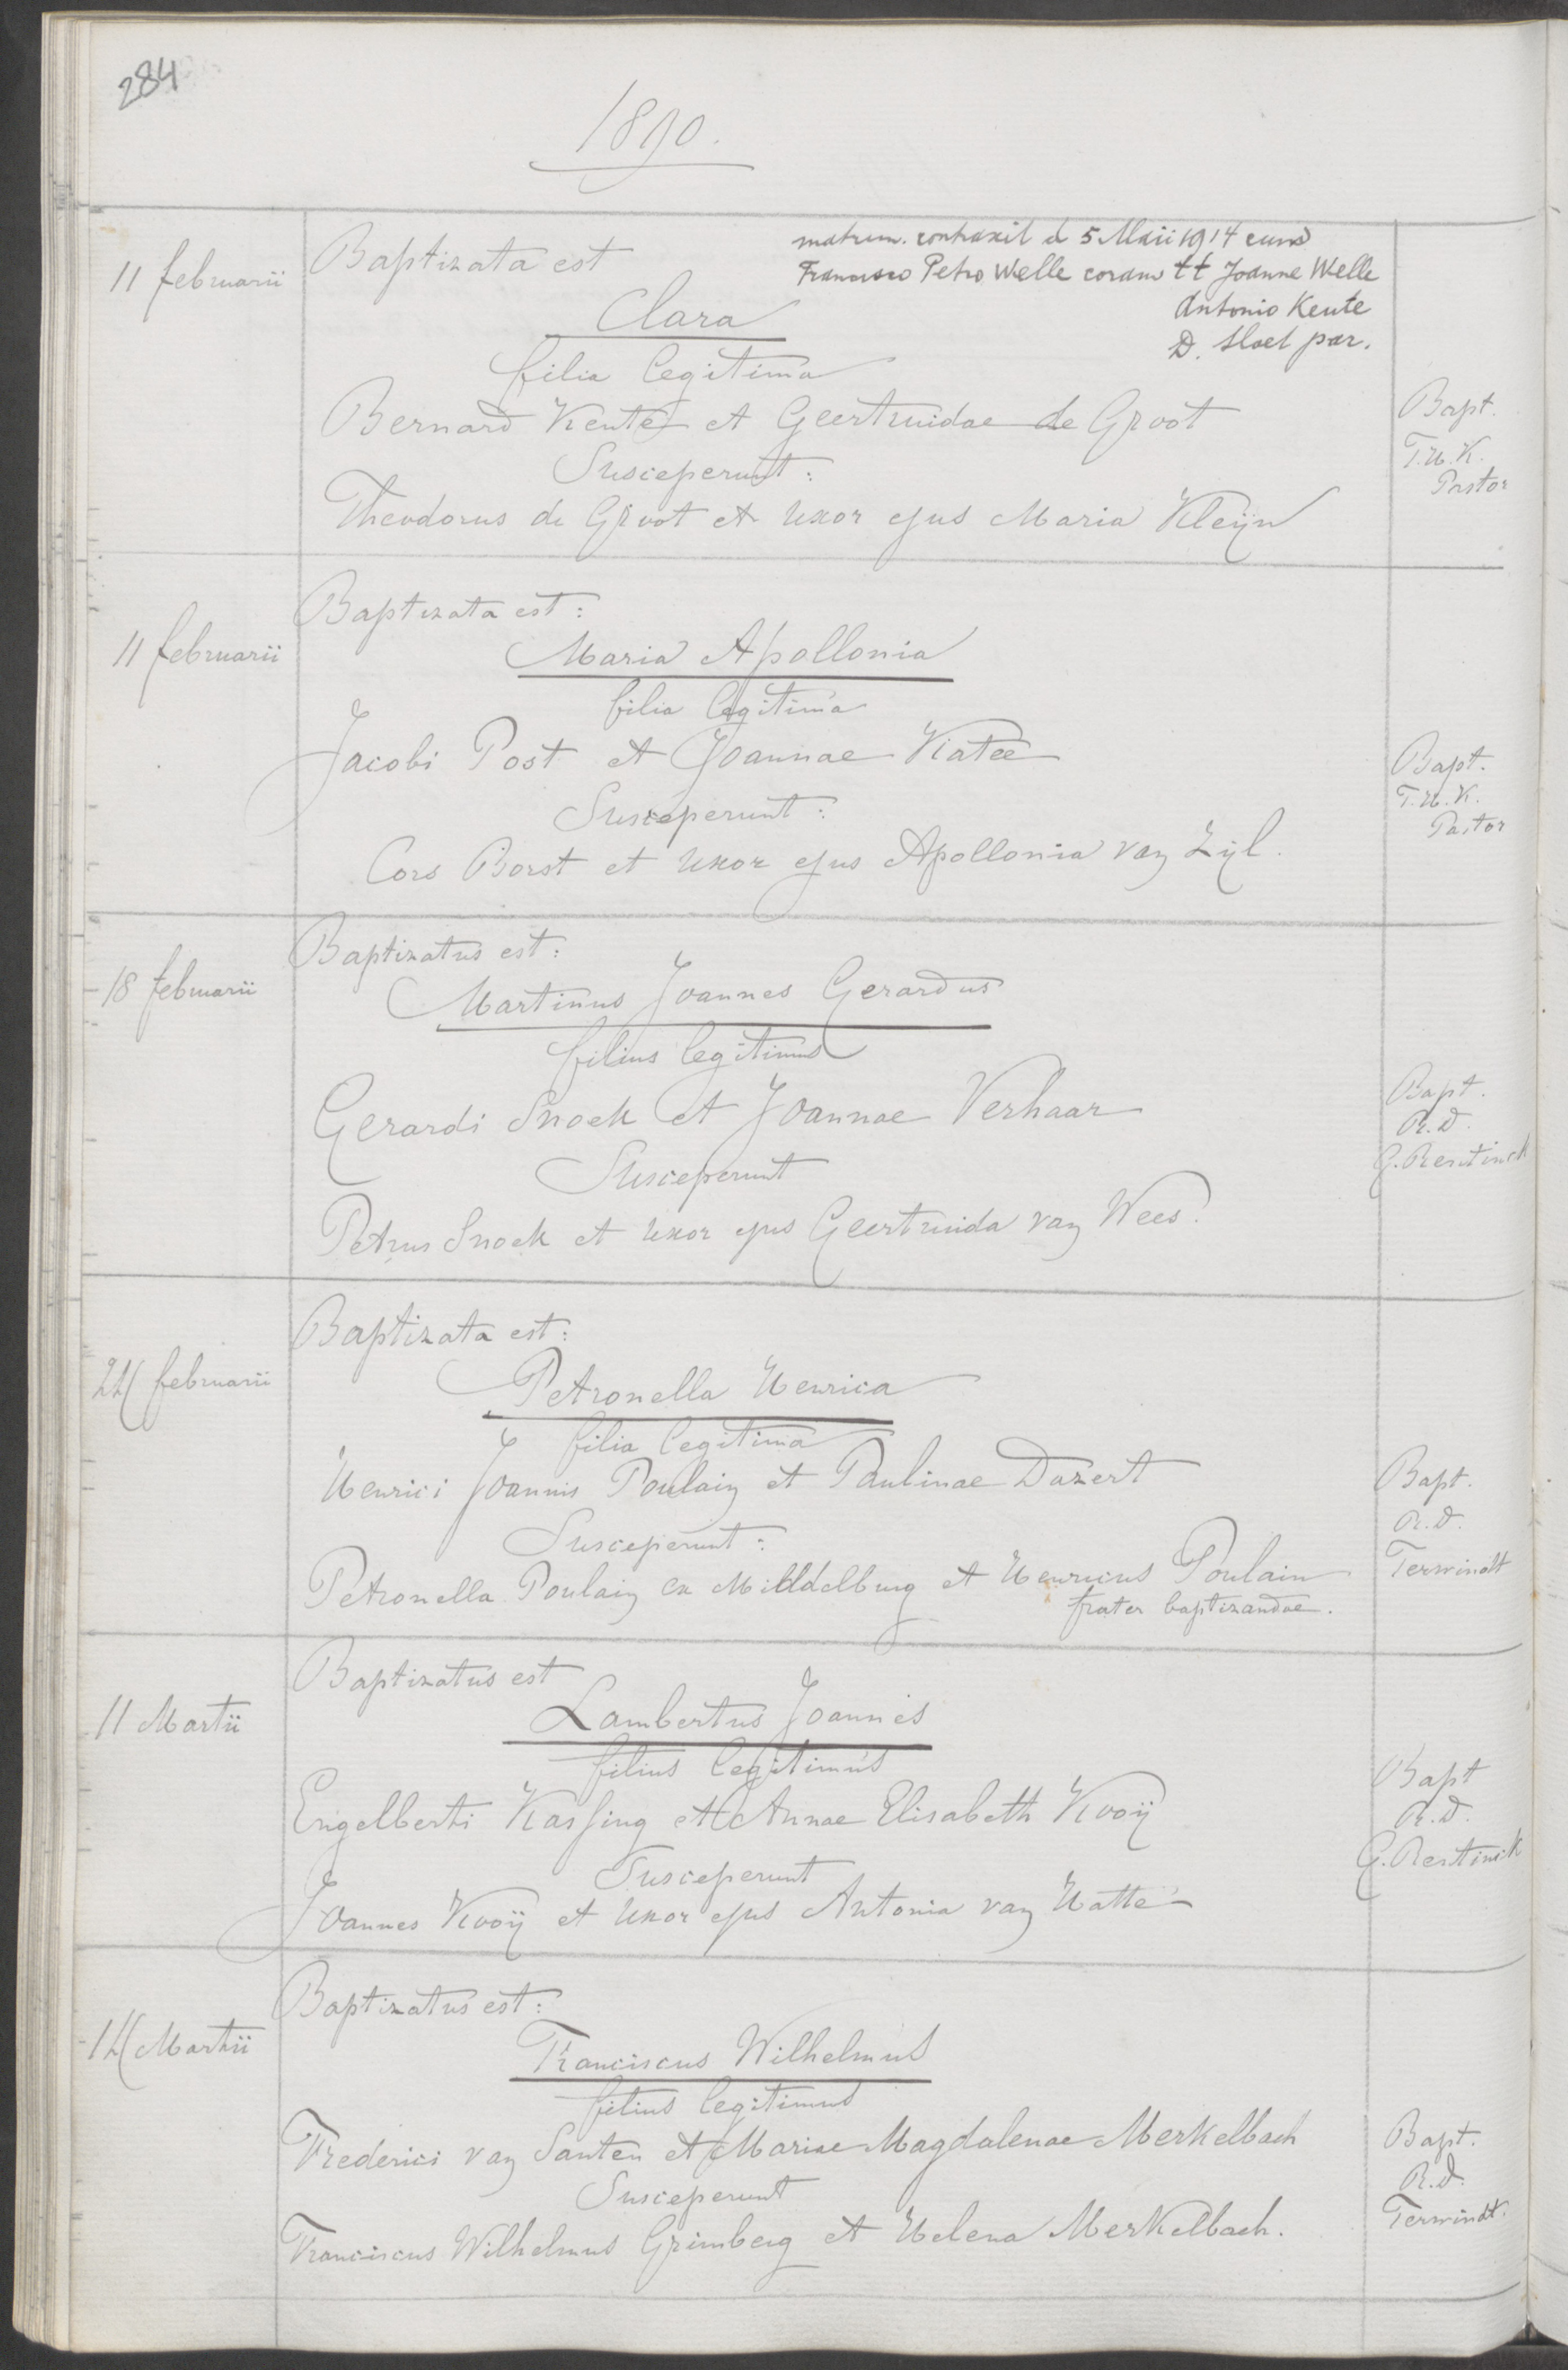 284
1890.
11 februarii
Baptizata est
matrim. contraxit d 5 Maii 1914 cum
Francisco Petro Welle coram tt Joanne Welle
Antonio Keute
D. Sloet par.
Clara
filia legitima
Bernard Keute et Geertruidae de Groot
Susceperunt:
Theodorus de Groot et Uxor ejus Maria Kleijn
Bapt.
T.H.K.
Pastor
11 februarii
Baptizata est:
Maria Apollonia
filia legitima
Jacobi Post et Joannae Katee
Susceperunt:
Cors Borst et Uxor ejus Apollonia van Zijl.
Bapt.
T.H.K.
Pastor
18 februarii
Baptizatus est:
Martinus Joannes Gerardus
filius legitimus
Gerardi Snoek et Joannae Verhaar
Susceperunt
Petrus Snoek et Uxor ejus Geertruida van Wees.
Bapt.
R.D.
G. Rentinck
24 februarii
Baptizata est:
Petronella Henrica
filia legitima
Henrici Joannis Poulain et Paulinae Dazert
Susceperunt:
Petronella Poulain ex Middelburg et Henricus Poulain
frater baptizandae.
Bapt.
R.D.
Terwindt
11 Martii
Baptizatus est
Lambertus Joannes
filius legitimus
Engelberti Kassing et Annae Elisabeth Kooij
Susceperunt
Joannes Kooij et Uxor ejus Antonia van Hatte
Bapt
R.D.
G. Rentinck
14 Martii
Baptizatus est:
Franciscus Wilhelmus
filius legitimus
Frederici van Santen et Mariae Magdalenae Merkelbach
Susceperunt
Franciscus Wilhelmus Grimberg et Helena Merkelbach.
Bapt.
R.D.
Terwindt.